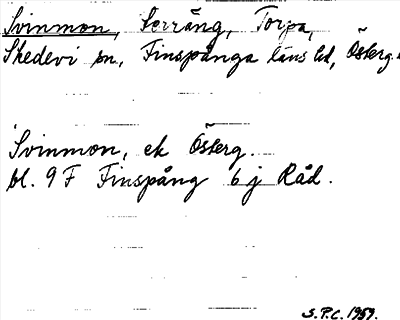 Svinmon, Serräng, Torpa,
Skedevi sn, Finspånga läns hd, Österg.
Svinmon, ek Österg.
bl. 9 F Finspång 6 j Råd.
S.P.C. 1959.